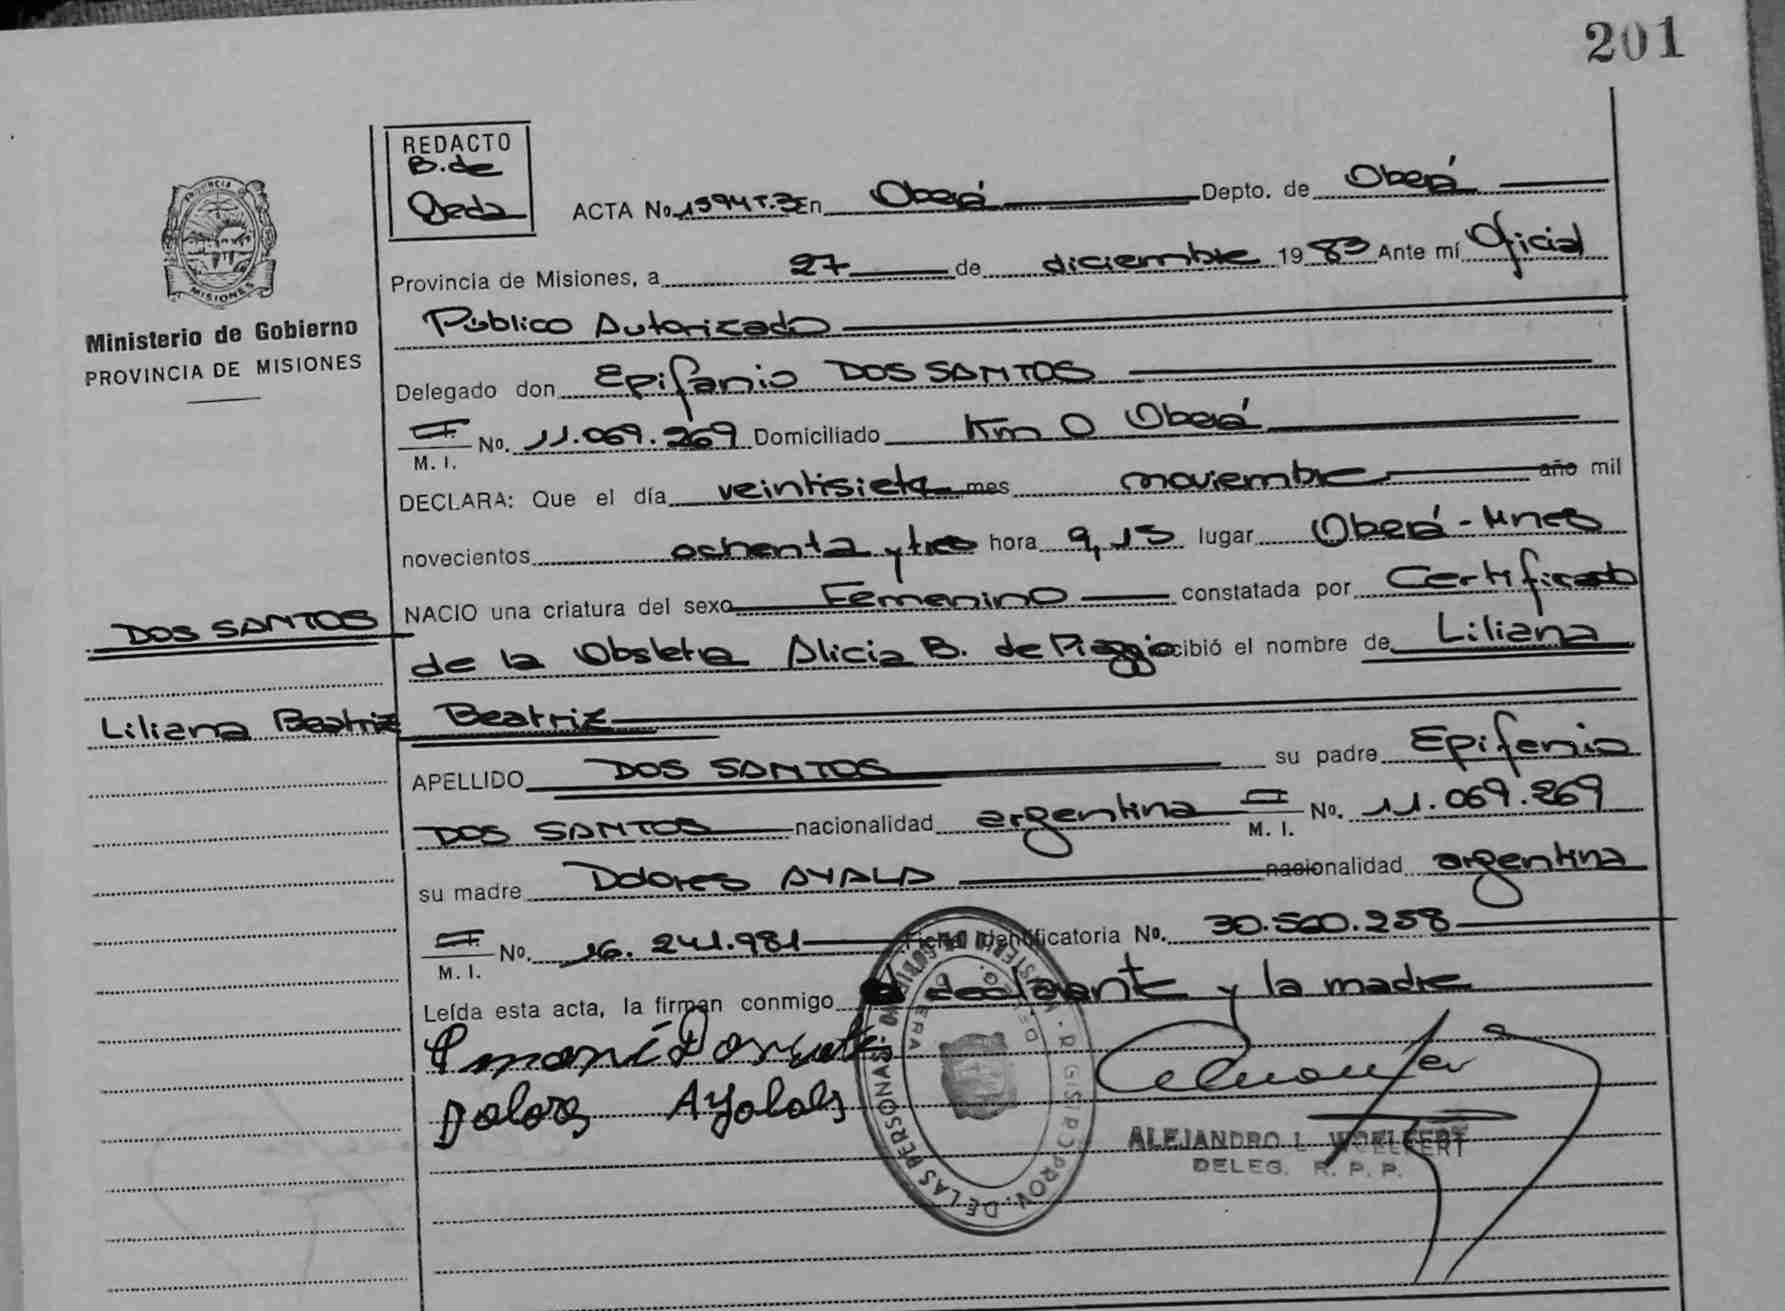 201
REDACTO
B. de
Ojeda
ACTA No. 1394 T. 3 En Oberá Depto. de Oberá
Provincia de Misiones, a 27 de diciembre 1983 Ante mí Oficial
Público Autorizado
Delegado don Epifanio DOS SANTOS
M. I. No. 11.069.269 Domiciliado Km 0 Oberá
DECLARA: Que el día veintisiete mes noviembre año mil
novecientos ochenta y tres hora 9,15 lugar Oberá - Mnes
NACIO una criatura del sexo Femenino constatada por Certificado
de la Obstetra Alicia B. de cibió el nombre de Liliana
Beatriz
APELLIDO DOS SANTOS su padre Epifanio
DOS SANTOS nacionalidad argentina M. I. No. 11.069.269
su madre Dolores AYALA nacionalidad argentina
M. I. No. 16.241.981 Ficha Identificatoria No. 30.560.258
Leída esta acta, la firman conmigo declarante y la madre
Dolores
ALEJANDRO L. WOELFERT
DELEG. R. P. P.
PROVINCIA
MISIONES
Ministerio de Gobierno
PROVINCIA DE MISIONES
DOS SANTOS
Liliana Beatriz
PROV. DE LAS PERSONAS